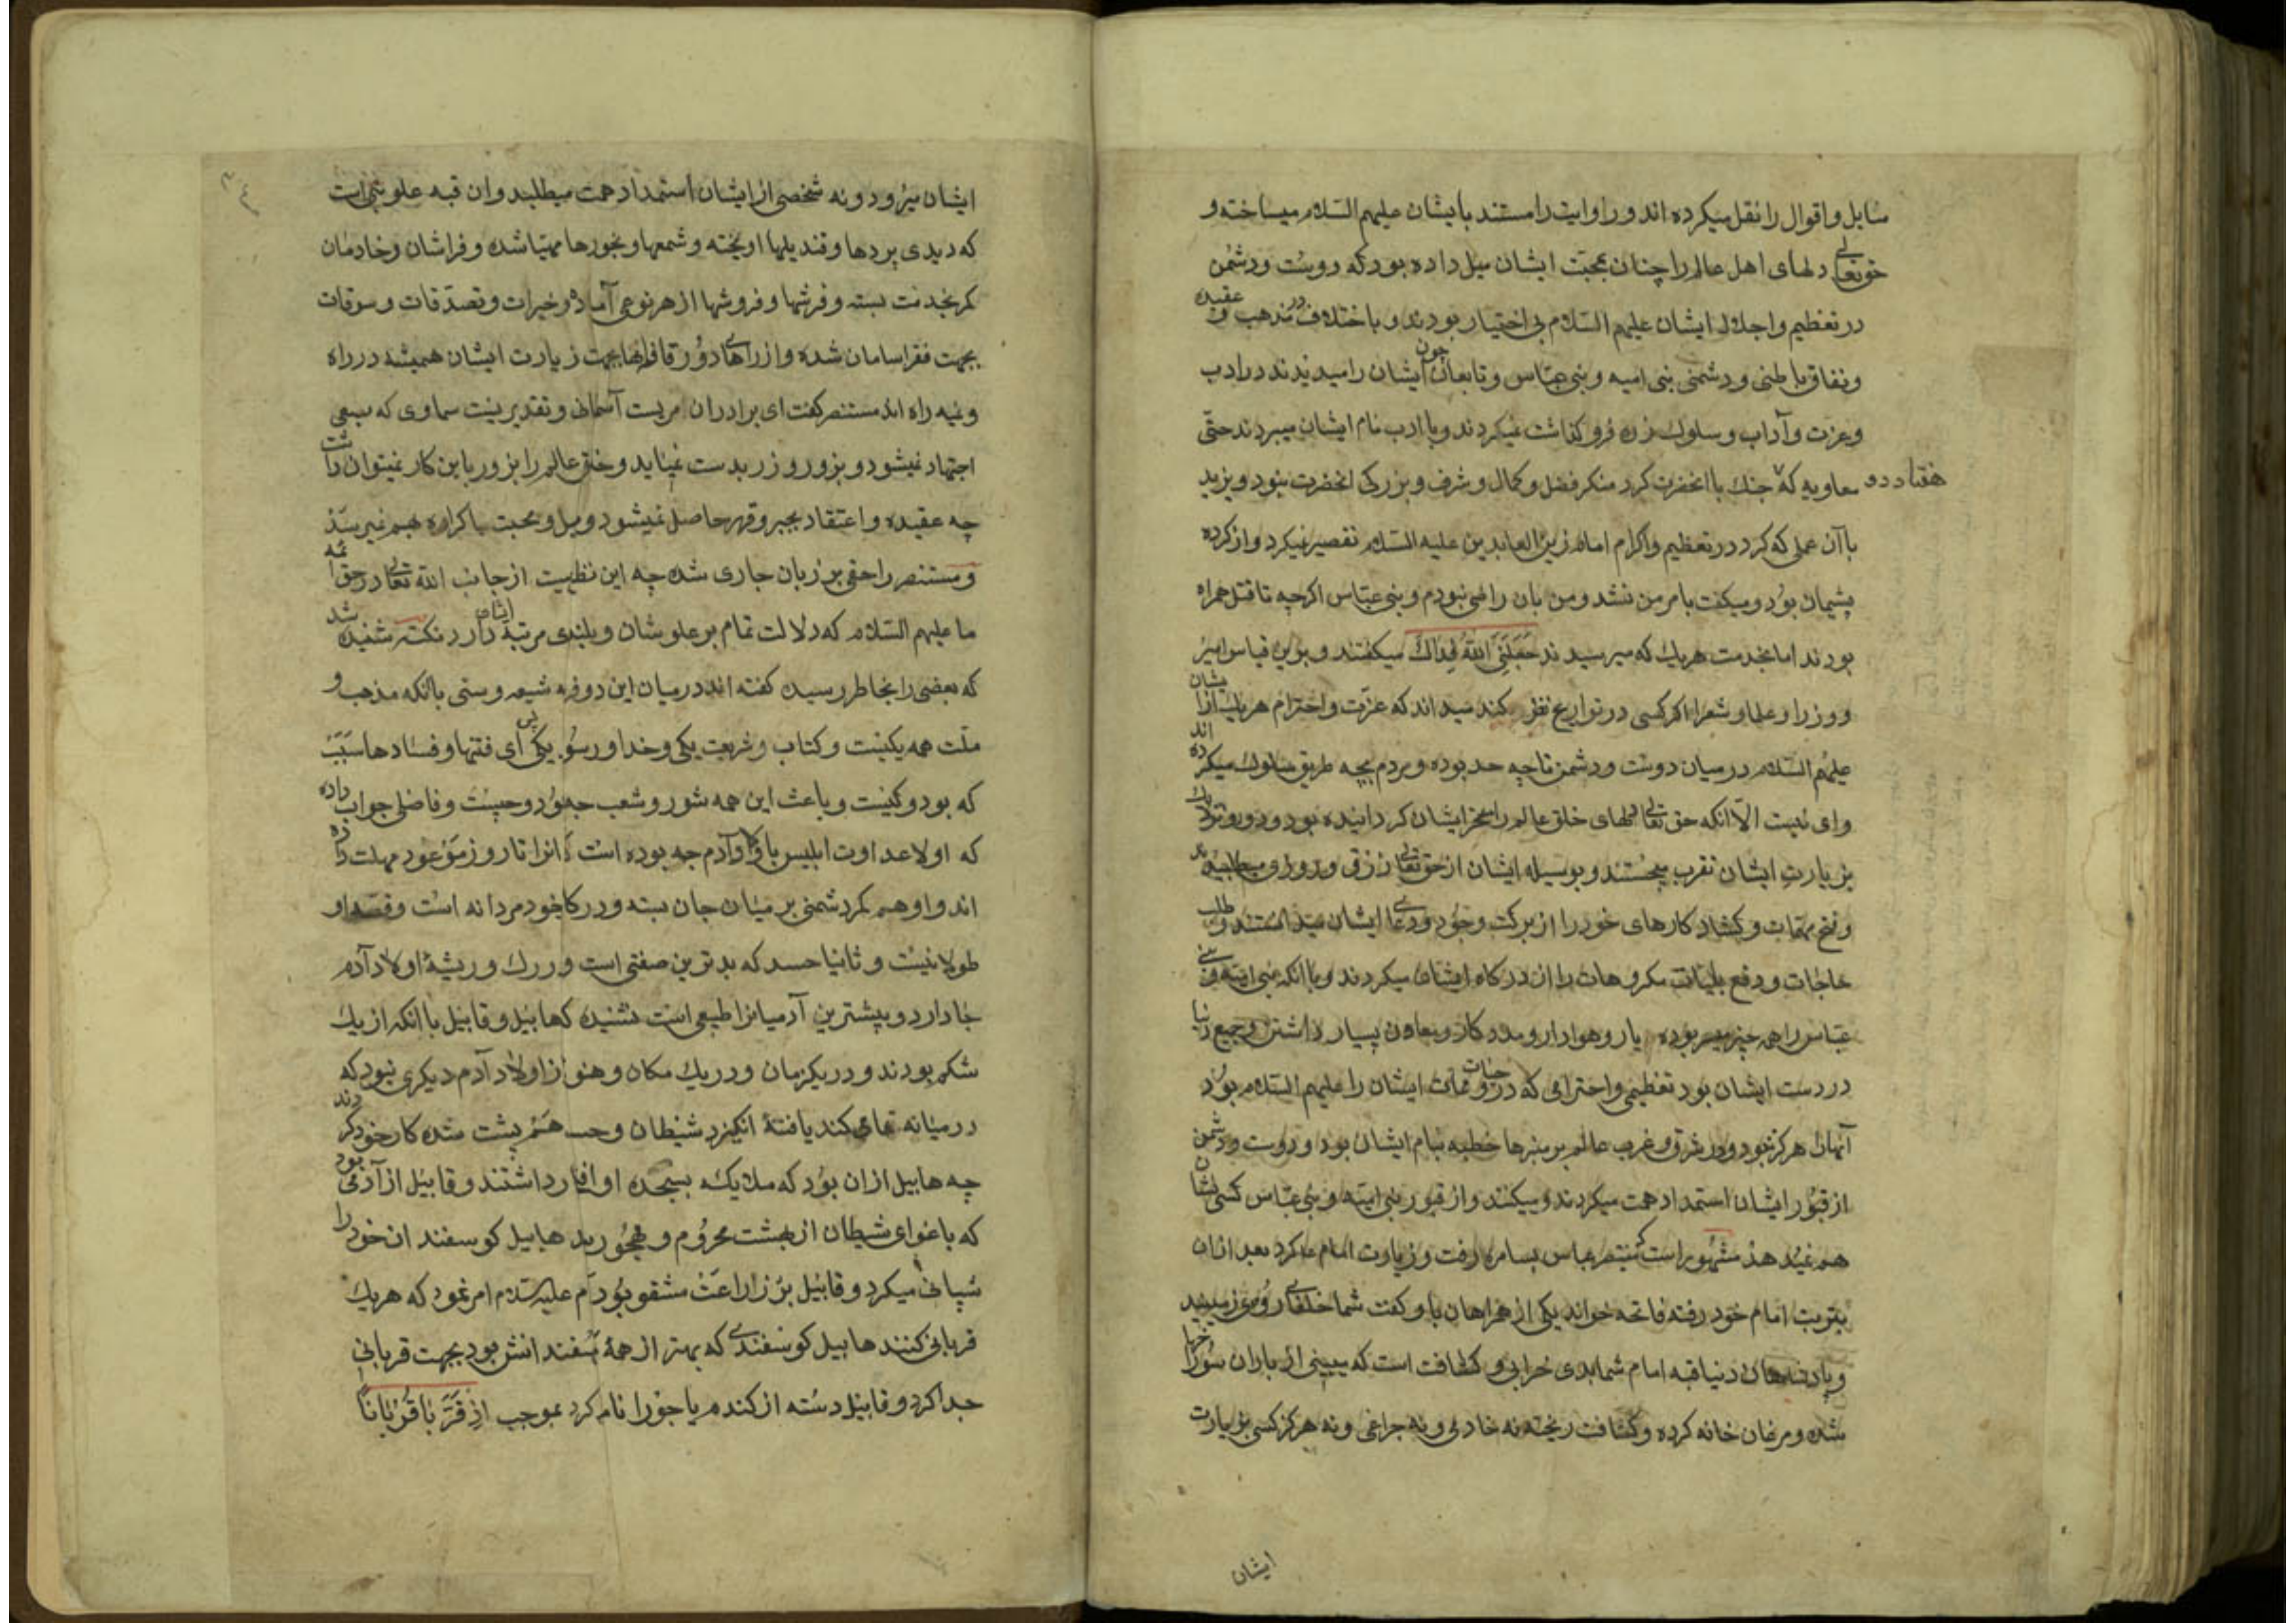 مسایل و اقوال را نقل میکرده اند و روایت را مستند بایشان علیهم السلام میساخته و
حق تعالی دلهای اهل عالم را چنان بمحبت ایشان میل داده بود که دوست و دشمن
در تعظیم و اجلال ایشان علیهم السلام بی اختیار بودند و با اختلاف در مذهب و عقیده
و نفاق باطنی و دشمنی بنی امیه و بنی عباس و تابعان چون ایشان را میدیدند در ادب
و عزت و آداب و سلوک ذره فرو گذاشت نمیکردند و با ادب نام ایشان میبردند حتی
معاویه که هفتاد و دو جنک با آنحضرت کرد منکر فضل و کمال و شرف و بزرکی انحضرت نبود و یزید
با آن عملی که کرد در تعظیم و اکرام امام زین العابدین علیه السلام تقصیر نمیکرد و از کرده
پشیمان بود و میکفت بامر من نشد و من بان راضی نبودم و بنی عباس اکرچه تا قتل همراه
بودند اما بخدمت هریک که میرسیدند جَعَلَنِیَ اللهُ فِدَاكَ میکفتند و برین قیاس امیر
و وزرا و علما و شعرا اکر کسی در تواریخ نظر کند میداند که عزت و احترام هریک از ایشان
علیهم السلام در میان دوست و دشمن تا چه حد بوده و مردم بچه طریق سلوک میکرده اند
و این نیست الا آنکه حق تعالی دلهای خلق عالم را مسخر ایشان کردانیده بود و دور و نزدیک
بزیارت ایشان تقرب میجستند و بوسیله ایشان از حق تعالی رزق و روزی میطلبیدند
و فتح مهمات و کشاد کارهای خود را از برکت وجود و دعای ایشان میدانستند و طلب
حاجات و دفع بلیات مکروهات را از درکاه ایشان میکردند و با انکه بنی امیه و بنی
عباس را همه چیز میسر بوده یار و هوادار و مددکار و معاون بسیار داشتن و جمیع دنیا
در دست ایشان بود تعظیمی و احترامی که در حیات و ممات ایشان را علیهم السلام بود
آنهارا هرکز نبود و در شرق و غرب عالم بر منبرها خطبه بنام ایشان بود و دوست و دشمن
از قبور ایشان استمداد همت میکردند و میکنند و از قبور بنی امیه و بنی عباس کسی نشان
هم نمیدهد مشهور است که مستنصر عباس بسامره رفت و زیارت امام ع کرد بعد ازان
بتربت امام خود رفته فاتحه خواند یکی از همراهان باو کفت شما خلفای روی زمینید
و پادشاهان دنیا قبه امام شما بدین خرابی و کثافت است که میبینی از باران سوراخها
شده و مرغان خانه کرده و کثافت ریخته نه خادمی و نه چراغی و نه هرکز کسی بزیارت
ایشان
ایشان میرود و نه شخصی از ایشان استمداد همت میطلبد و ان قبه علویی است
که دیدی پردها و قندیلها اویخته و شمعها و بخورها مهیا شده و فراشان و خادمان
کمر بخدمت بسته و فرشها و فروشها از هر نوعی آماده و خیرات و تصدقات و سوقات
بجهت فقرا سامان شده و از راههای دور قافلها بجهت زیارت ایشان همیشه در راه
و نیمه راه اند مستنصر کفت ای برادران امریست آسمانی و تقدیریست سماوی که بسعی
اجتهاد نمیشود و بزور و زر بدست نمیاید و خلق عالم را بزور باین کار نمیتوان داشت
چه عقیده و اعتقاد بجبر و قهر حاصل نمیشود و میل و محبت باکراه بهم نمیرسد
و مستنصر را حقی بر زبان جاری شده چه این نظریست از جانب الله تعالی در حق ائمه
ما علیهم السلام که دلالت تمام بر علو شان و بلندی مرتبه ایشان دارد نکته شنیده شد
که بعضی را بخاطر رسیده کفته اند در میان این دو فرقه شیعه و سنی بآنکه مذهب و
ملت همه یکیست و کتاب و شریعت یکی و خدا و رسول یکی پس ای فتنها و فسادها سبب
که بود و کیست و باعث این همه شور و شعب چه بود و چیست و فاضلی جواب داده
که اولا عداوت ابلیس با اولاد آدم چه بوده است که انرا تا روز موعود مهلت داده
اند و او هم کمر دشمنی بر میان جان بسته و در کار خود مردانه است و قصه او
طولانیست و ثانیا حسد که بدترین صفتی است و در رک و ریشهٔ اولاد آدم
جا دارد و بیشترین آدمیانرا طبیعی است نشنیده که هابیل و قابیل با انکه از یک
شکم بودند و در یکزمان و در یک مکان و هنوز از اولاد آدم دیکری نبود که
در میانه تمامی کند یا فتنهٔ انکیزد شیطان و حسد هم پشت شده کار خود کردند
چه هابیل ازان بود که ملایک بسجده او اقرار داشتند و قابیل از آدمی بود
که باغوای شیطان از بهشت محروم و مهجور بد هابیل کوسفندان خود را
شبانی میکرد و قابیل بزراعت مشغول بود آدم علیه السلام امر نمود که هریک
قربانی کنند هابیل کوسفندی که بهتر از همهٔ کوسفندانش بود بجهت قربانی
جدا کرد و قابیل دسته از کندم یا جو را نامزد کرد بموجب اِذ قَرَّبَا قُرْبَانًا